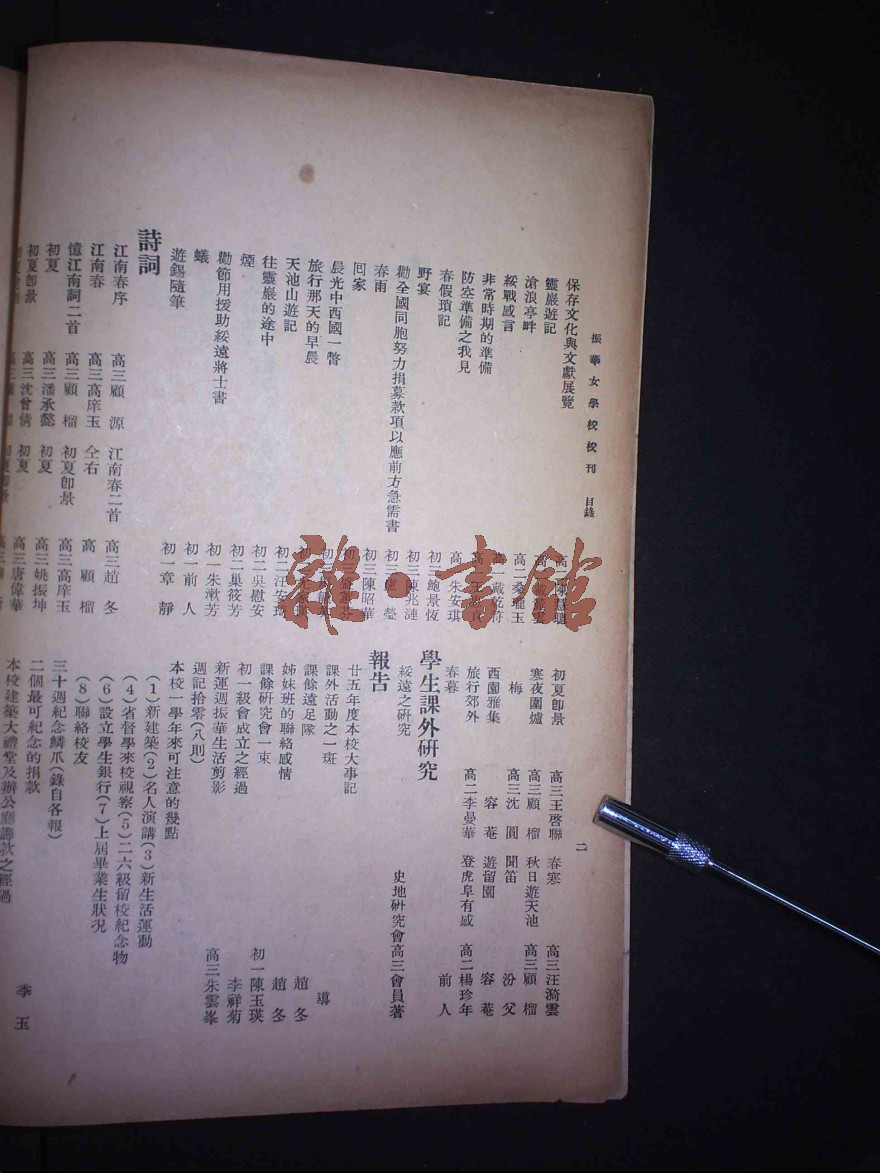 振華女學校校刊 目錄
二
保存文化與文獻展覽
靈巖遊記
滄浪亭畔
綏戰感言 高二秦瓏玉
非常時期的準備 高一戴乾符
防空準備之我見
春假瑣記 高一朱安琪
野宴 初三鮑景恆
勸全國同胞努力捐募款項以應前方急需書 初三陳兆漣
春雨
囘家 初三陳昭華
晨光中西國一瞥
旅行那天的早晨
天池山遊記
往靈巖的途中 初二吳慰安
煙 初二巢筱芳
勸節用援助綏遠將士書 初一朱漱芳
蟻 初一前 人
遊錫隨筆 初一章 靜
詩詞
江南春序 高三顧 源 江南春二首 高三趙 冬
江南春 高三高庠玉 仝右 高 顧 榴
憶江南詞二首 高三顧 榴 初夏卽景 高三高庠玉
初夏 高三潘承懿 初夏 高三姚振坤
初夏卽景 高三沈曾倩 初夏 高三唐偉華
初夏卽景 高三王啓聯 春寒 高三汪漪雲
寒夜圍爐 高三顧 榴 秋日遊天池 高三顧 榴
梅 高三沈 圓 聞笛 汾 父
西園雅集 容 菴 遊留園 容 菴
旅行郊外 高二李曼華 登虎阜有感 高二楊珍年
春暮 前 人
學生課外研究
綏遠之硏究 史地硏究會高三會員著
報告
廿五年度本校大事記
課外活動之一斑 導
課餘遠足隊 趙 冬
姊妹班的聯絡感情 趙 冬
課餘硏究會一束 初一陳玉瑛
初一級會成立之經過 李祥菊
新運週振華生活剪影 高三朱雲峯
週記拾零(八則)
本校一學年來可注意的幾點
(1)新建築(2)名人演講(3)新生活運動
(4)省督學來校視察(5)二六級留校紀念物
(6)設立學生銀行(7)上屆畢業生狀况
(8)聯絡校友
三十週紀念鱗爪(錄自各報)
二個最可紀念的捐款 季 玉
本校建築大禮堂及辦公廳籌款之經過
雜·書館